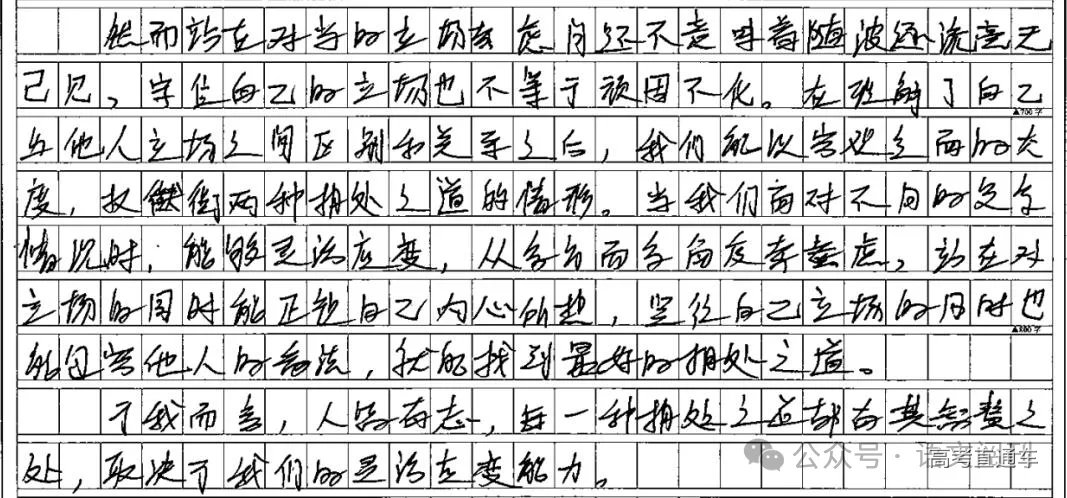 然而站在对方的立场考虑问题不意味着随波逐流毫无
己见，守住自己的立场也不等于顽固不化。在理解了自己
▲700字
与他人立场之间区别和关系之后，我们能以客观全面的态
度，权衡两种相处之道的情形。当我们面对不同的交际
情况时，能够灵活应变，从多方面多角度来考虑，站在对
立场的同时能正视自己内心所想，坚守自己立场的同时也
▲800字
能包容他人的看法，就能找到最好的相处之道。
于我而言，人各有志，每一种相处之道都有其智慧之
处，取决于我们的灵活应变能力。
公众号·语
高考直通车